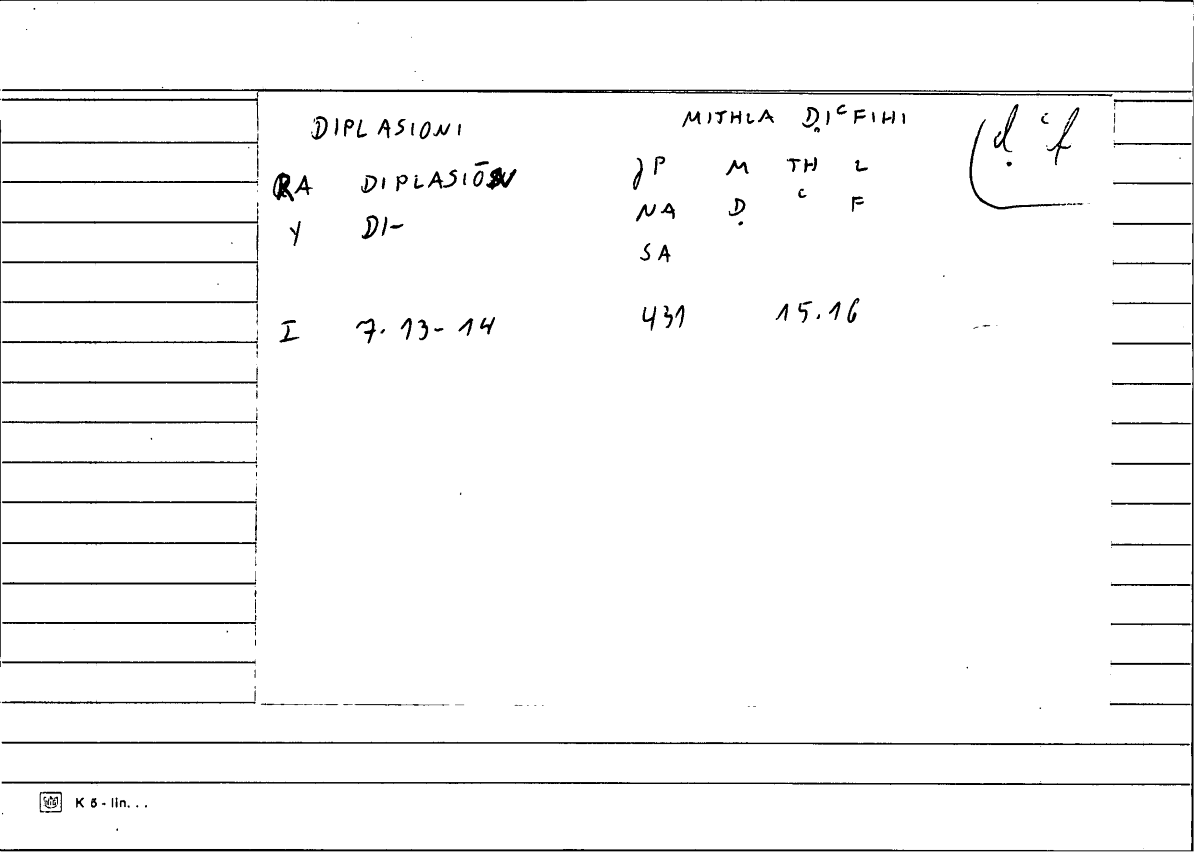 DIPLASIONI MITHLA ḌIᶜFIHI ḍ ᶜf
RA DIPLASIŌN P M TH L
Y DI- NA Ḍ ᶜ F
SA
I 7. 13-14 431 15.16
K 6 - lin. . .